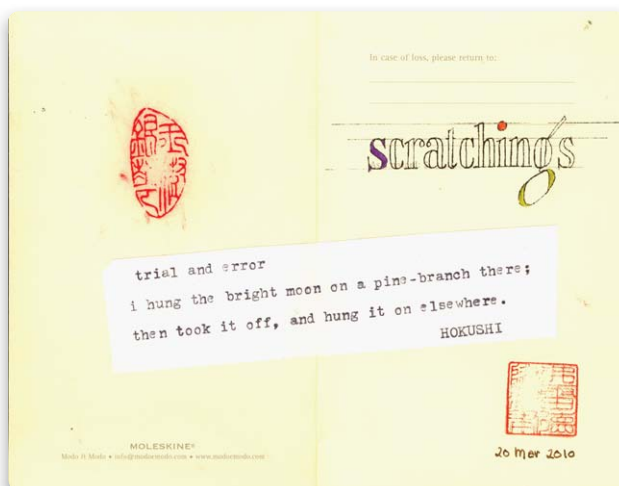 In case of loss, please return to:
scratchings
trial and error
i hung the bright moon on a pine-branch there;
then took it off, and hung it on elsewhere.
HOKUSHI
MOLESKINE®
Modo & Modo • info@modoemodo.com • www.modoemodo.com
20 Mer 2010